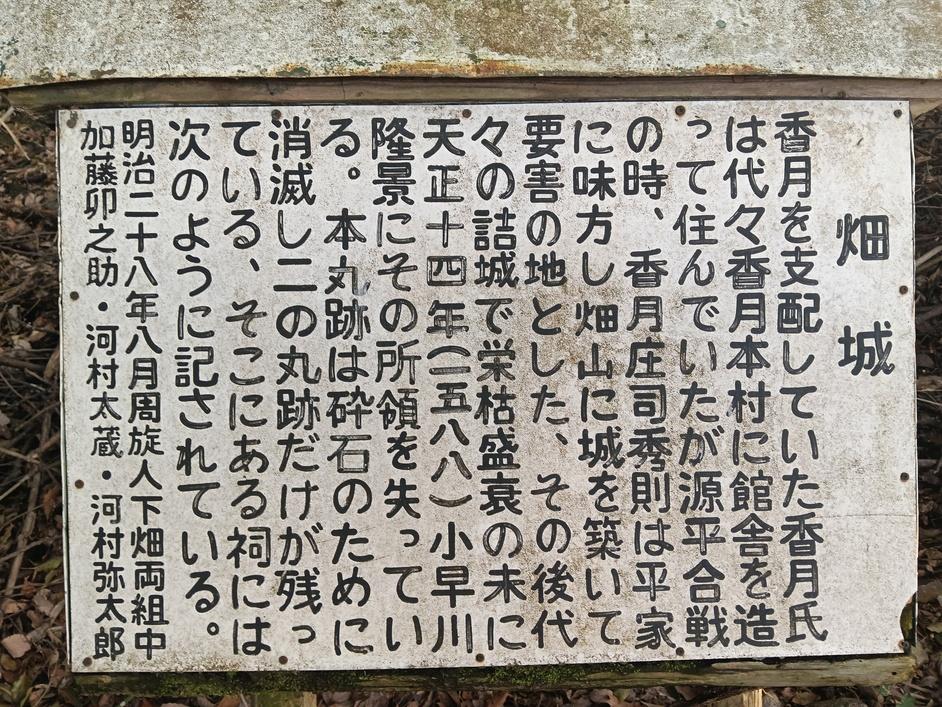 畑城
香月を支配していた香月氏
は代々香月本村に館舎を造
って住んでいたが源平合戦
の時、香月庄司秀則は平家
に味方し畑山に城を築いて
要害の地とした、その後代
々の詰城で栄枯盛衰の末に
天正十四年(一五八八)小早川
隆景にその所領を失ってい
る。本丸跡は砕石のために
消滅し二の丸跡だけが残っ
ている、そこにある祠には
次のように記されている。
明治二十八年八月周旋人下畑両組中
加藤卯之助・河村太蔵・河村弥太郎